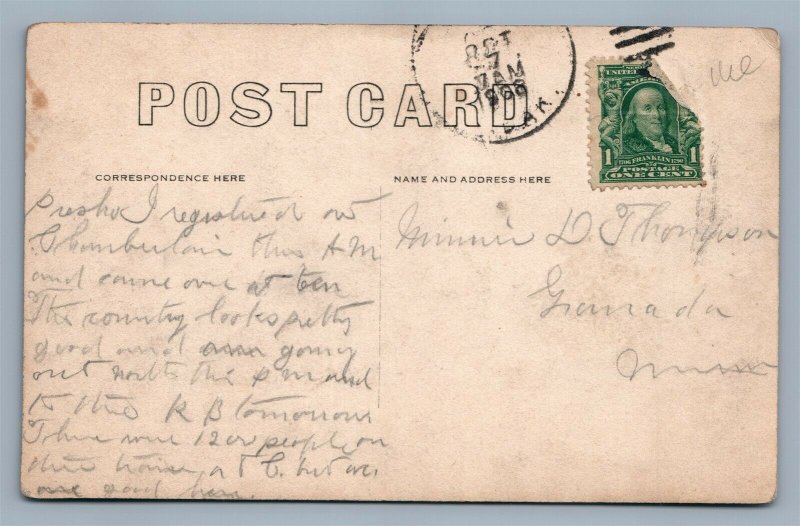 OCT
7
7 AM
1908
AK.
POST CARD
UNITED
AMERICA
1
1706 FRANKLIN 1790
POSTAGE
ONE CENT
1
CORRESPONDENCE HERE
NAME AND ADDRESS HERE
Presho I registered at
Chamberlain this A M
and came over at ten
The country looks pretty
good and am going
out north this P M and
to the R B tomorrow
There were 1200 people on
this train at C. but
are good here.
Minnie D. Thompson
Granada
Minn